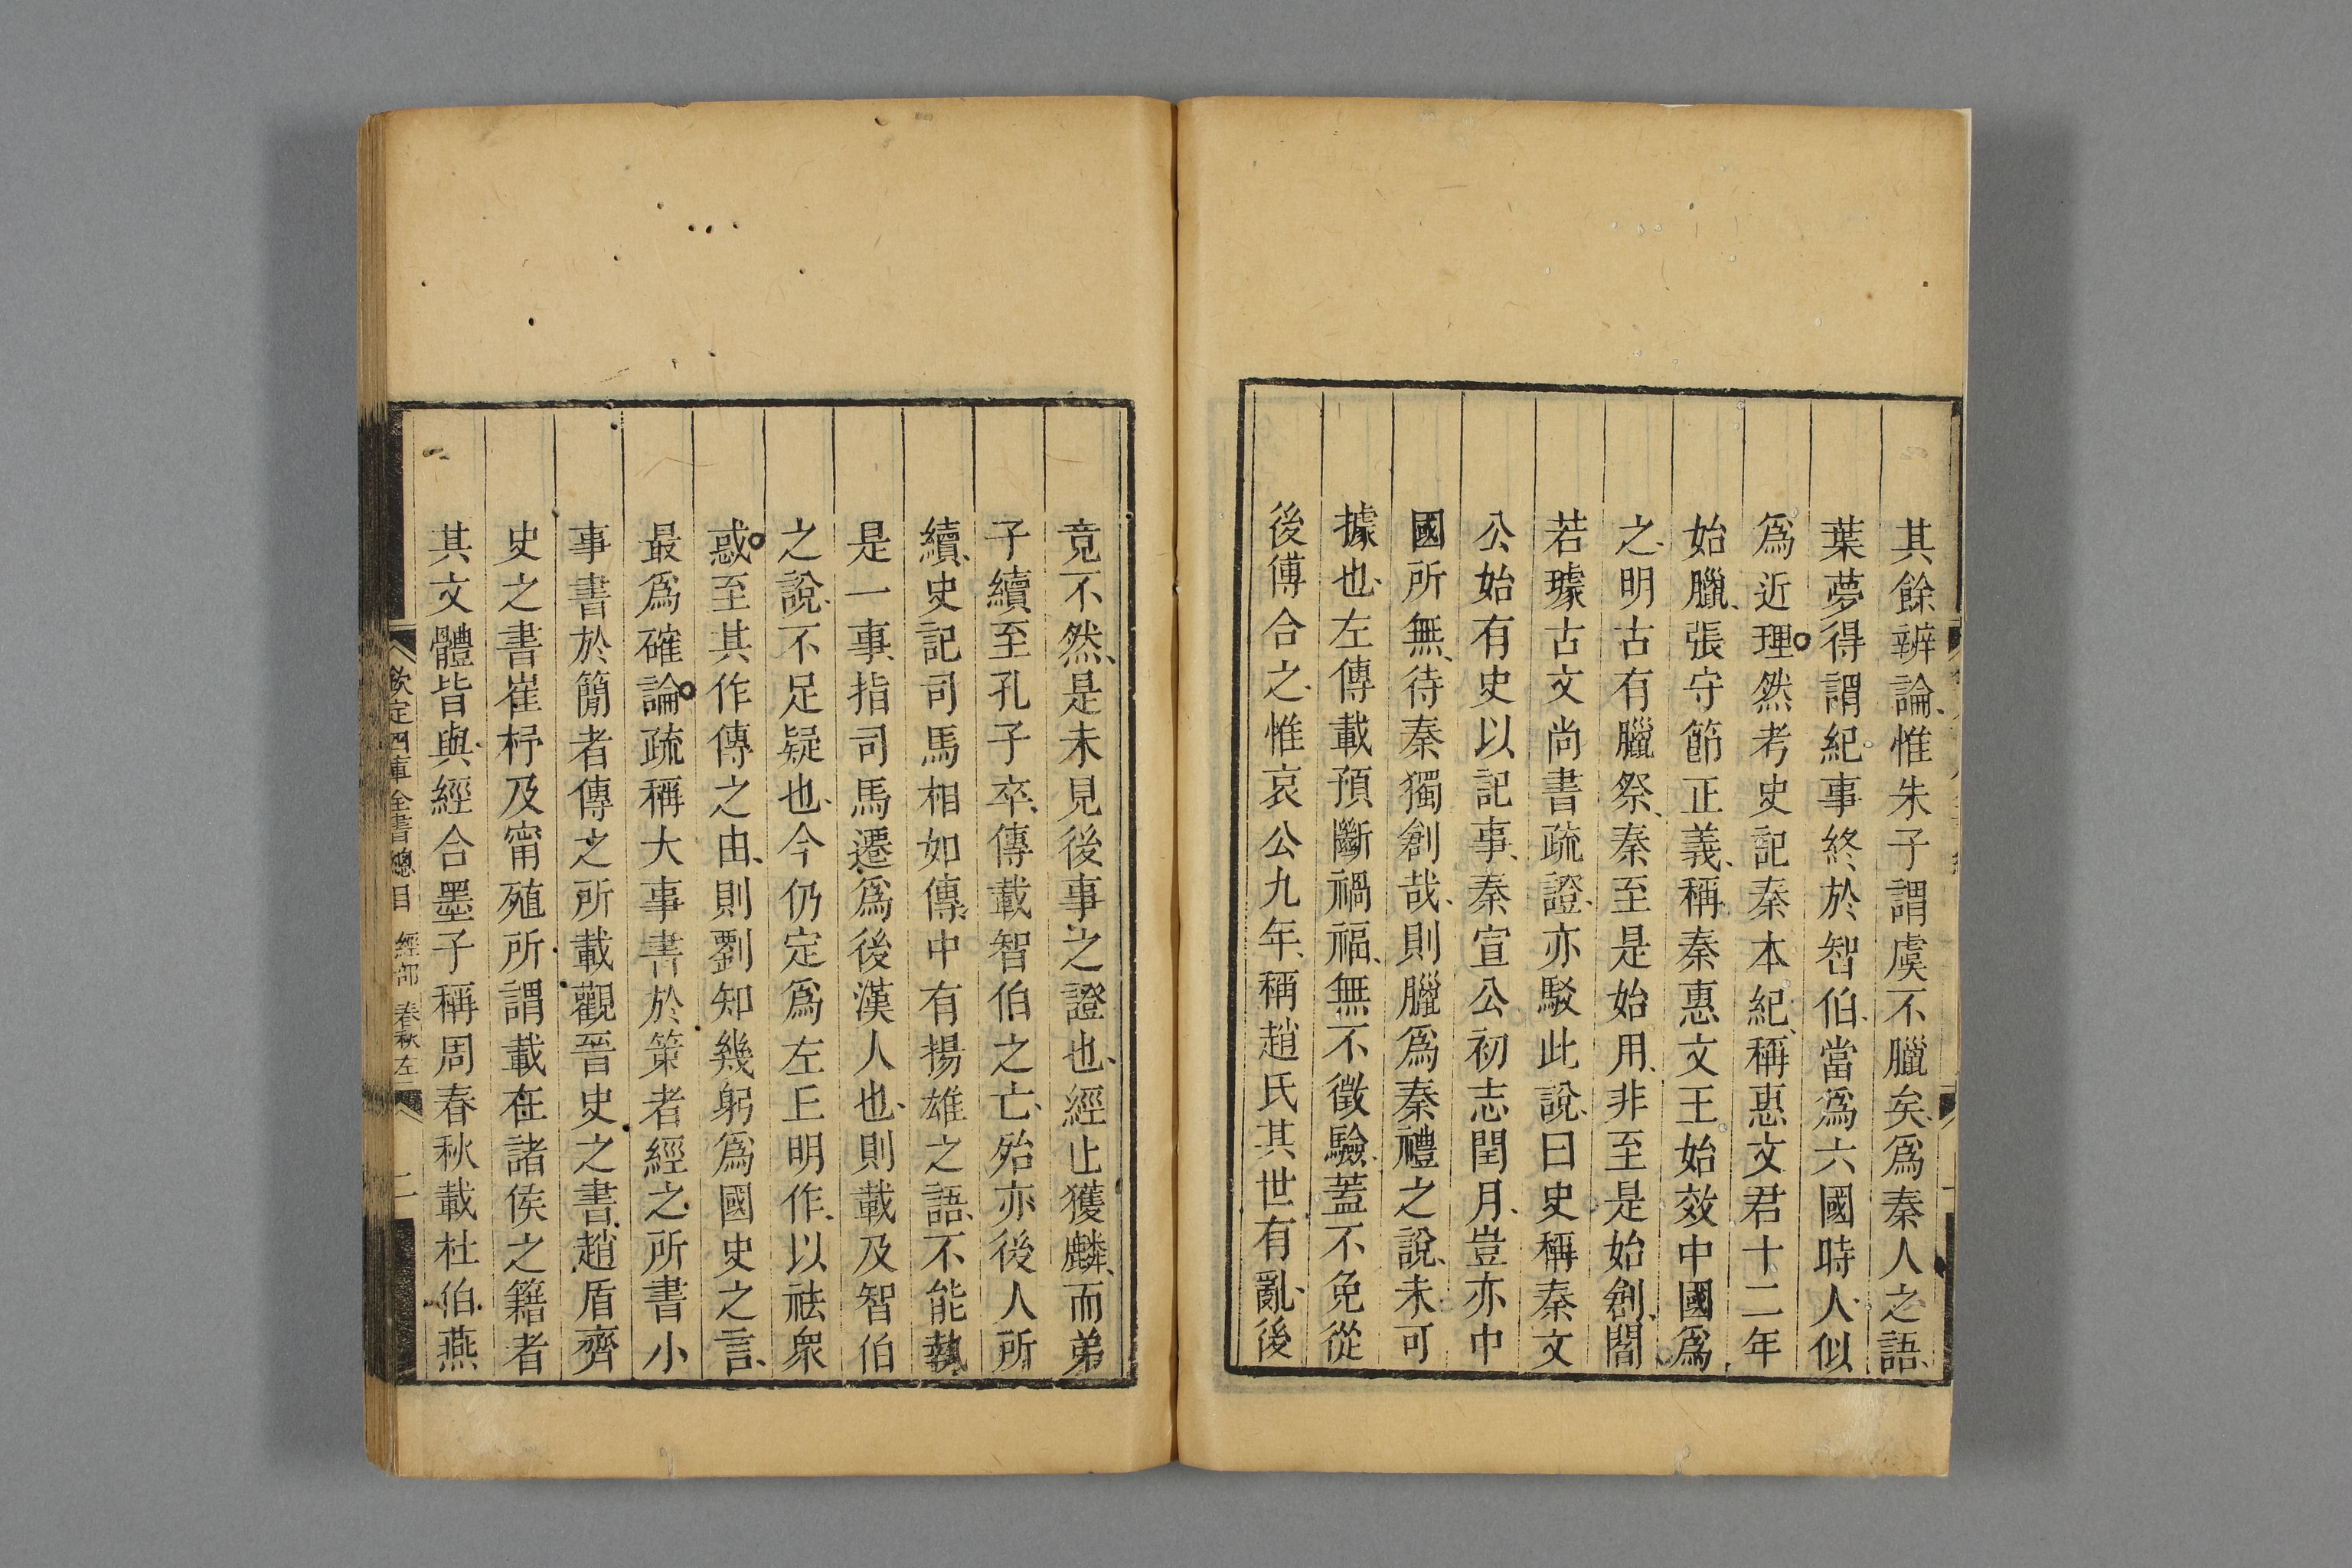 其餘辨論惟朱子謂虞不臘矣爲秦人之語
葉夢得謂紀事終於智伯當爲六國時人似
爲近理然考史記秦本紀稱惠文君十二年
始臘張守節正義稱秦惠文王始效中國爲
之明古有臘祭秦至是始用非至是始創閻
若璩古文尚書疏證亦駁此說曰史稱秦文
公始有史以記事秦宣公初志閏月豈亦中
國所無待秦獨創哉則臘爲秦禮之說未可
據也左傳載預斷禍福無不徵驗蓋不免從
後傅合之惟哀公九年稱趙氏其世有亂後
竟不然是未見後事之證也經止獲麟而弟
子續至孔子卒傳載智伯之亡殆亦後人所
續史記司馬相如傳中有揚雄之語不能執
是一事指司馬遷爲後漢人也則載及智伯
之說不足疑也今仍定爲左丘明作以祛衆
惑至其作傳之由則劉知幾躬爲國史之言
最爲確論疏稱大事書於策者經之所書小
事書於簡者傳之所載觀晉史之書趙盾齊
史之書崔杼及甯殖所謂載在諸侯之籍者
其文體皆與經合墨子稱周春秋載杜伯燕
欽定四庫全書總目 經部 春秋左 二